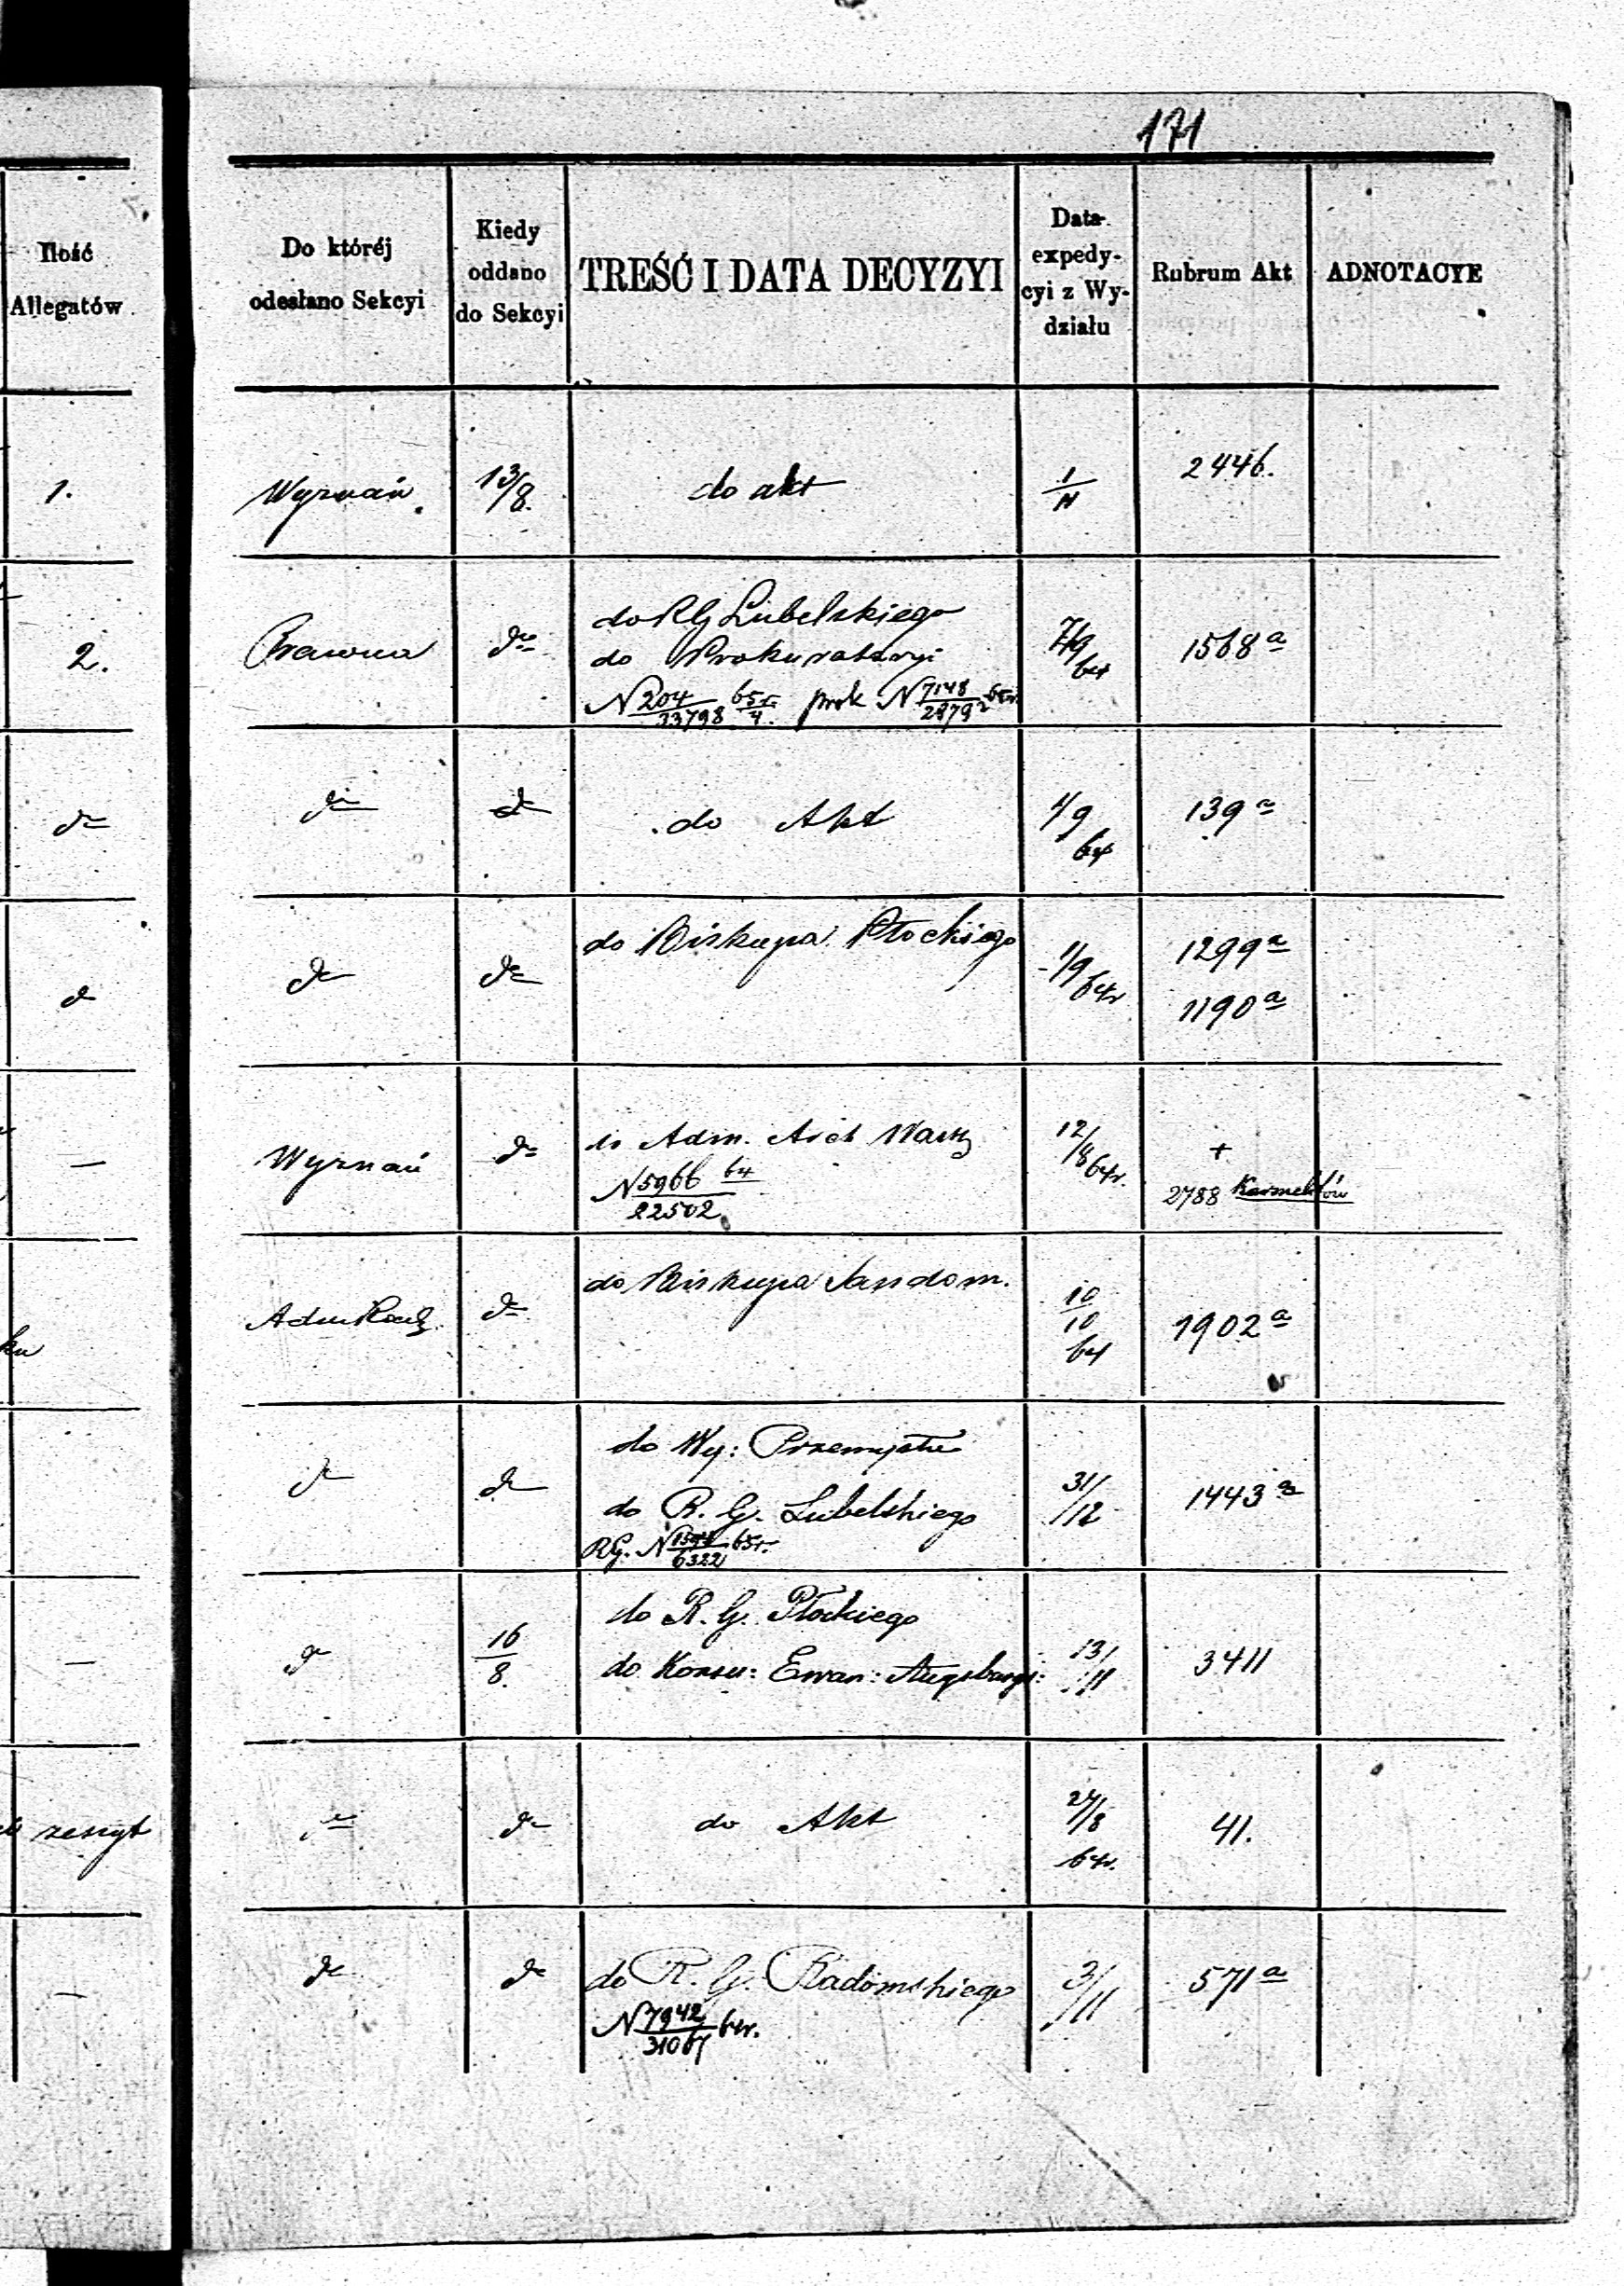 171
Ilość
Allegatów
Do któréj
odesłano Sekcyi
Kiedy
oddano
do Sekcyi
TREŚĆ I DATA DECYZYI
Data
expedy-
cyi z Wy-
działu
Rubrum Akt
ADNOTACYE
1.
Wyznań
13/8.
do akt
2446.
2.
Prawna
do
do RG Lubelskiego
do Prokuratoryi
N 204/33798 65r./4. prok N 7148/28792
7/9 64
1568 a
do
do
do
do Akt
1/9 64
139 a
do
do
do
do Biskupa Płockiego
1/9 64r
1299 a
1190 a
—
Wyznań
do
Adm. Arch Warsz
N 5966/22502 64
12/8 64r.
+
2788 Karmelitów
ku
do
do Biskupa Sandom.
10/10 64
1902 a
do
do
do Wy: Przemysłu
do R. G. Lubelskiego
RG. N /6322 65r.
31/12
1443 a
—
do
16/8.
do R. G. Płockiego
do Konsu: Ewan: Augsburgs:
13/11
3411
zeszyt
do
do
do Akt
27/8 64r.
41.
—
do
do
do R. G. Radomskiego
N 7942/31067 64r.
3/11
571 a